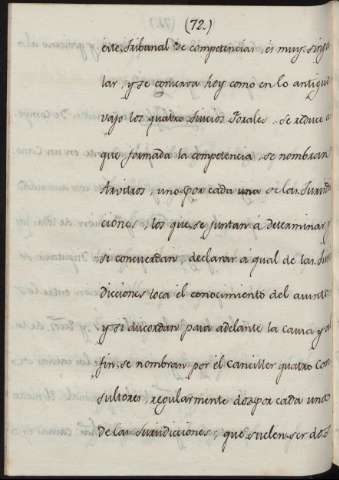 (72.)
este Tribunal de competencias, es muy singu
lar, y se conserva hoy como en lo antiguo
vajo los quatro Juicios Forales. Se reduce a
que formada la competencia, se nombran
Arvitros, uno por cada una de las Jurisdi
ciones, los que se juntan á determinar, y
si concuerdan, declarar á qual de las Juris
diciones toca el conocimiento del asunto,
y si discordan pasa adelante la causa, y al
fin se nombran por el Canciller quatro Con
sultores, regularmente dos por cada una
de las Jurisdiciones, que suelen ser dos